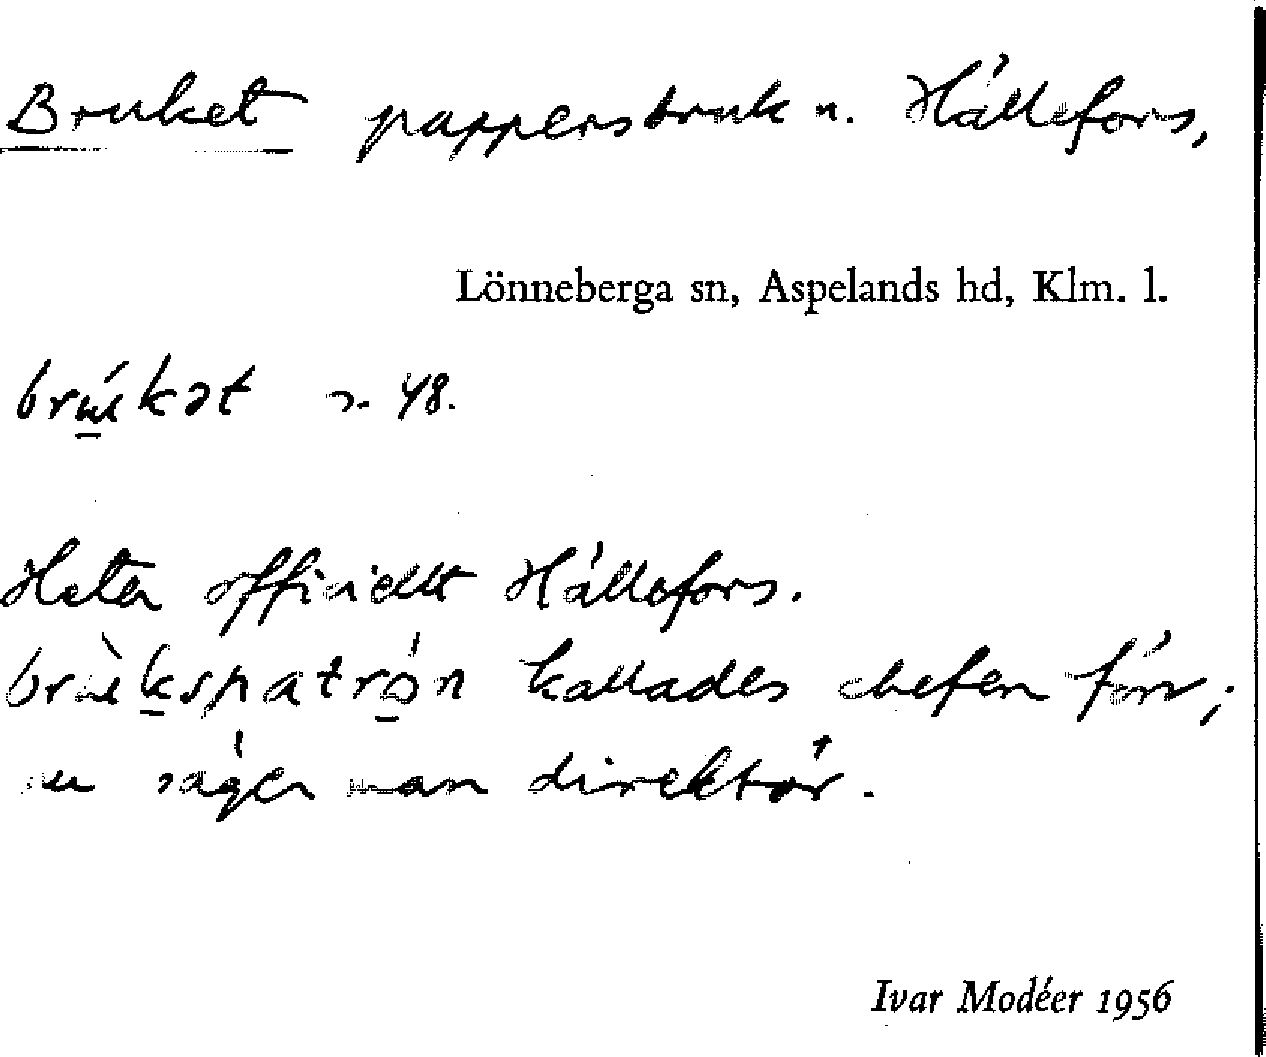 Bruket pappersbruk n. Hällefors,
Lönneberga sn, Aspelands hd, Klm. l.
brúkət s. 48.
Heter officiellt Hällefors.
brùkspatrón kallades chefen förr;
nu säger man direktör.
Ivar Modéer 1956